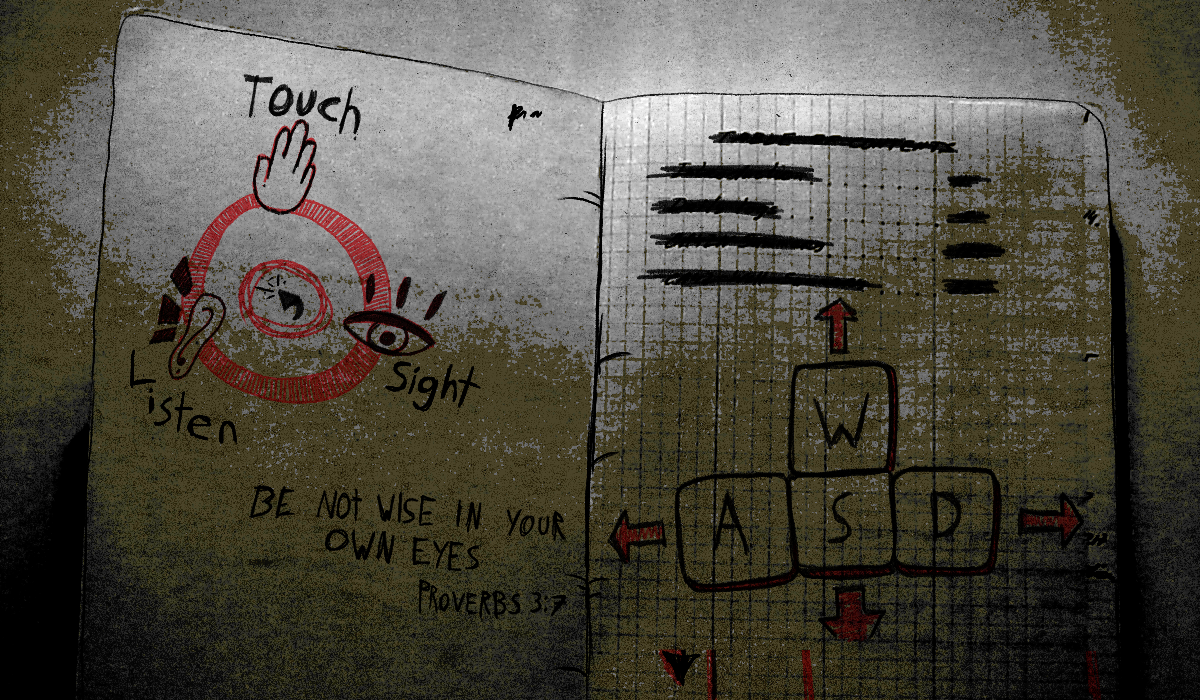 Touch
Sight
Listen
BE NOT WISE IN YOUR
OWN EYES
PROVERBS 3:7
W
A S D